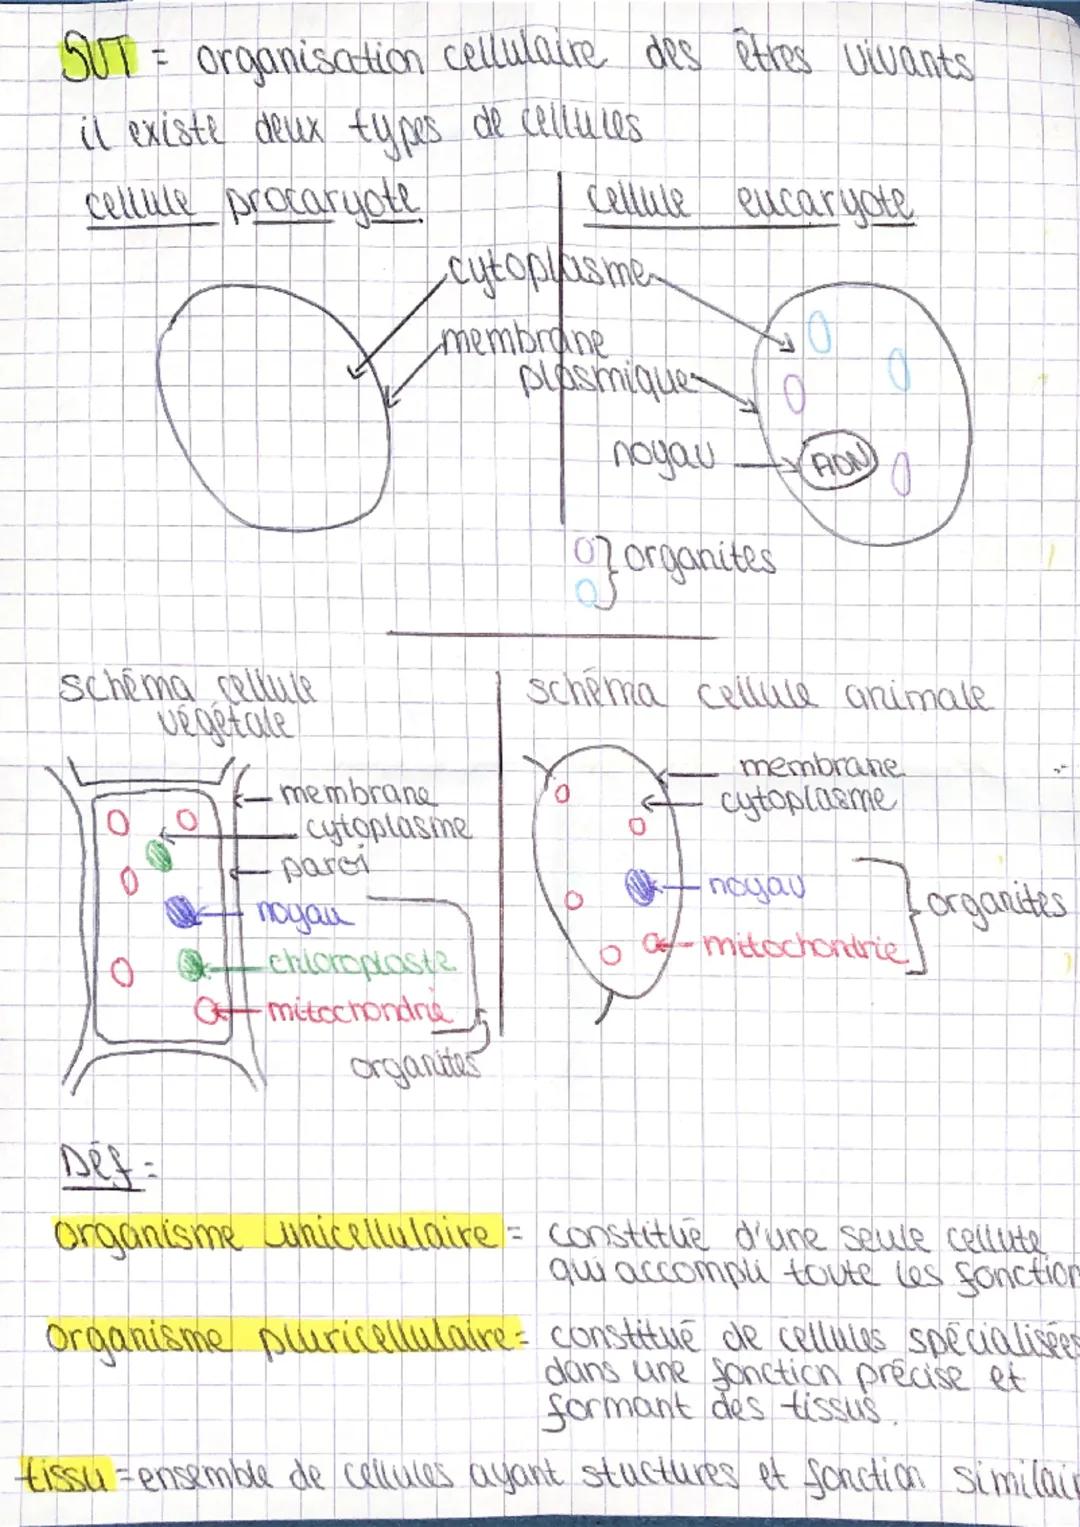 SVT = organisation cellulaire des êtres vivants
il existe deux types de cellules
cellule procaryote
cellule eucaryote
cytoplasme
membrane
plasmique
noyau
ADN
organites
schéma cellule
végétale
membrane
cytoplasme
paroi
noyau
chloroplaste
mitochondrie
organites
schéma cellule animale
membrane
cytoplasme
noyau
mitochondrie
organites
Déf =
organisme unicellulaire = constitué d'une seule cellule
qui accompli toute les fonction
organisme pluricellulaire = constitué de cellules spécialisées
dans une fonction précise et
formant des tissus.
tissu = ensemble de cellules ayant stuctures et fonction similair